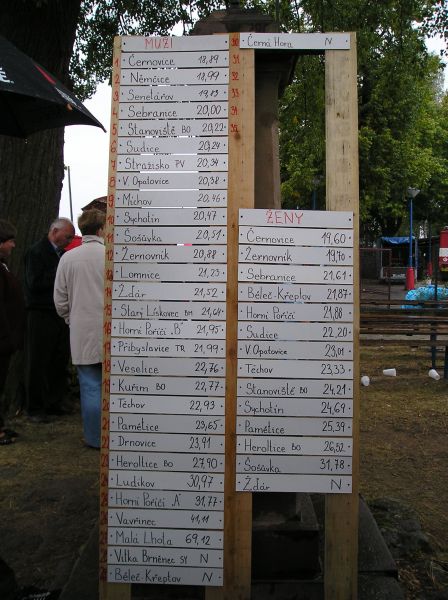 MUŽI
1 Černovice 18,89
2 Němčice 18,99
3 Senetářov 19,83
Sebranice 20,00
5 Stanoviště BO 20,22
6 Sudice 20,24
7 Stražisko PV 20,34
8 V. Opatovice 20,38
9 Míchov 20,46
10 Sychotín 20,47
11 Šošůvka 20,51
12 Žernovník 20,88
13 Lomnice 21,23
14 Žďár 21,52
15 Starý Lískovec BM 21,64
16 Horní Poříčí "B" 21,95
Přibyslavice TR 21,99
18 Veselice 22,76
19 Kuřim BO 22,77
20 Těchov 22,93
21 Pamětice 23,65
22 Drnovice 23,91
23 Heroltice BO 27,90
24 Ludíkov 30,97
Horní Poříčí "A" 31,77
Vavřinec 41,11
Malá Lhota 69,12
Vítka Brněnec SY N
Běleč-Křeptov N
30 Černá Hora N
31
32
33
34
35
ŽENY
Černovice 19,60
Žernovník 19,70
Sebranice 21,61
Běleč-Křeptov 21,87
Horní Poříčí 21,88
Sudice 22,20
V. Opatovice 23,01
Těchov 23,33
Stanoviště BO 24,21
Sychotín 24,69
Pamětice 25,39
Heroltice BO 26,52
Šošůvka 31,78
Žďár N